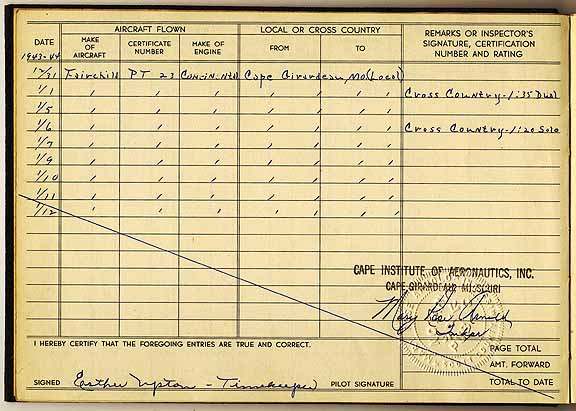 AIRCRAFT FLOWN LOCAL OR CROSS COUNTRY
DATE MAKE OF AIRCRAFT CERTIFICATE NUMBER MAKE OF ENGINE FROM TO REMARKS OR INSPECTOR'S SIGNATURE, CERTIFICATION NUMBER AND RATING
1943-44
12/31 Fairchild PT 23 Cape Girardeau, Mo. (Local)
1/1 " " " " " " " Cross Country-1:35 Dual
1/5 " " " " " " "
1/6 " " " " " " " Cross Country-1:20 Solo
1/7 " " " " " " "
1/9 " " " " " " "
1/10 " " " " " " "
1/11 " " " " " " "
1/12 " " " " " " "
CAPE INSTITUTE OF AERONAUTICS, INC.
CAPE GIRARDEAU MISSOURI
Mary Arnold
I HEREBY CERTIFY THAT THE FOREGOING ENTRIES ARE TRUE AND CORRECT.
PAGE TOTAL
AMT. FORWARD
SIGNED Esther Upton - Timekeeper PILOT SIGNATURE
TOTAL TO DATE